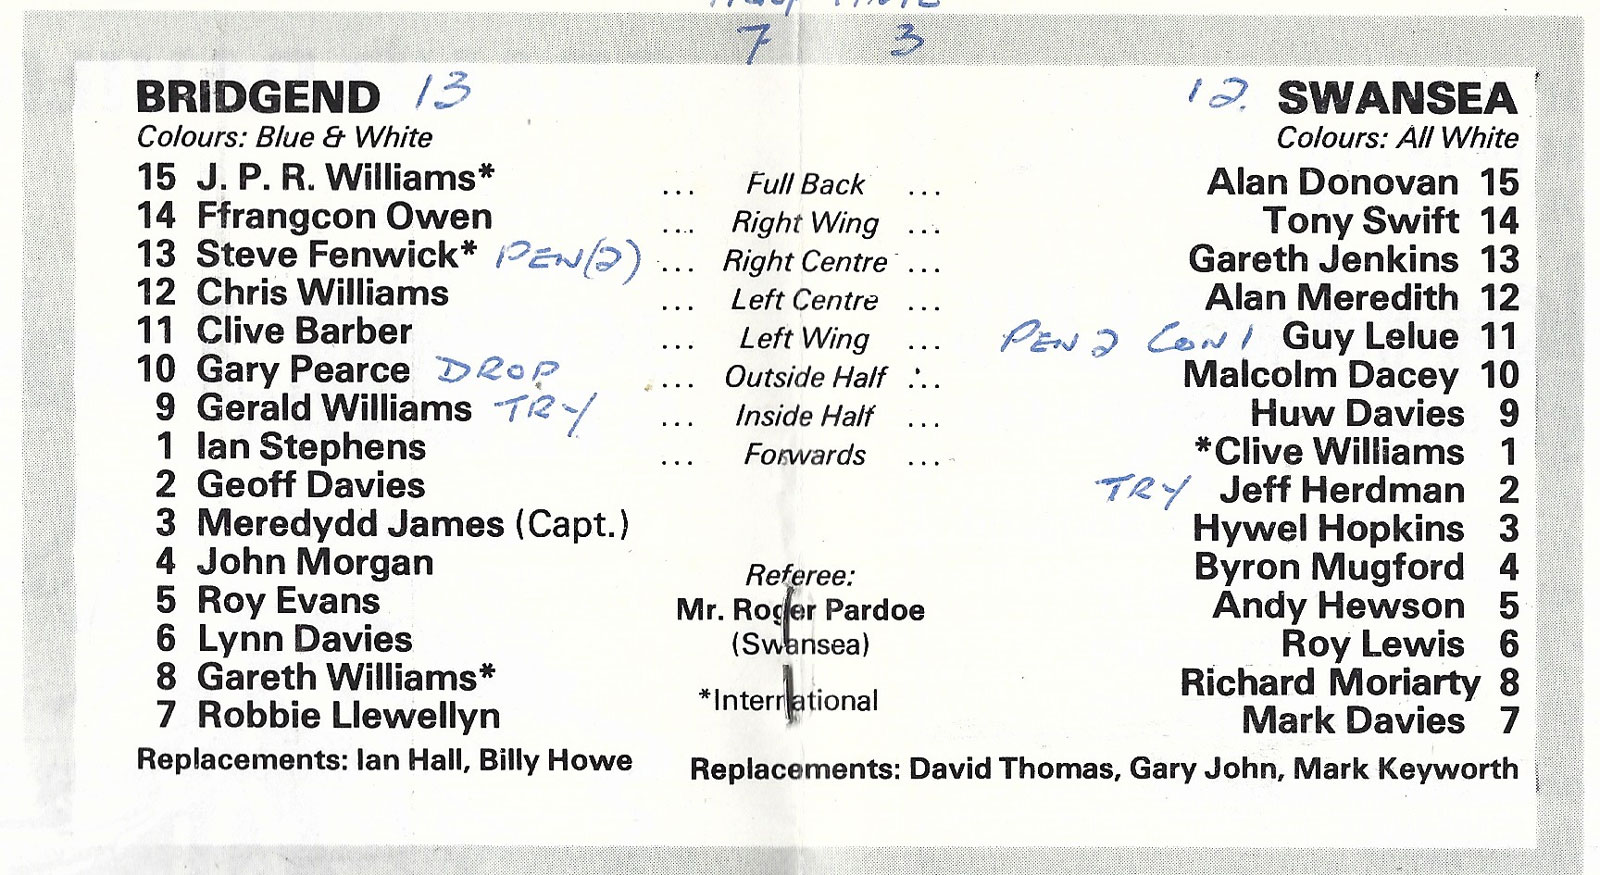 HALF TIME
7 3
BRIDGEND 13 12. SWANSEA
Colours: Blue & White Colours: All White
15 J. P. R. Williams* ... Full Back ... Alan Donovan 15
14 Ffrangcon Owen ... Right Wing ... Tony Swift 14
13 Steve Fenwick* PEN(2) ... Right Centre ... Gareth Jenkins 13
12 Chris Williams ... Left Centre ... Alan Meredith 12
11 Clive Barber ... Left Wing ... PEN 2 CON 1 Guy Lelue 11
10 Gary Pearce DROP ... Outside Half ... Malcolm Dacey 10
9 Gerald Williams TRY ... Inside Half ... Huw Davies 9
1 Ian Stephens ... Forwards ... *Clive Williams 1
2 Geoff Davies TRY Jeff Herdman 2
3 Meredydd James (Capt.) Hywel Hopkins 3
4 John Morgan Referee: Byron Mugford 4
5 Roy Evans Mr. Roger Pardoe Andy Hewson 5
6 Lynn Davies (Swansea) Roy Lewis 6
8 Gareth Williams* *International Richard Moriarty 8
7 Robbie Llewellyn Mark Davies 7
Replacements: Ian Hall, Billy Howe Replacements: David Thomas, Gary John, Mark Keyworth